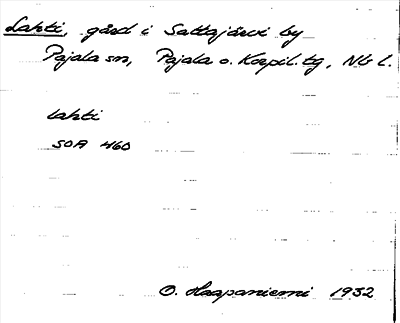 Lahti, gård i Sattajärvi by
Pajala sn, Pajala o. Korpil. tg, Nb l.
Lahti
SOA 460
O. Haapaniemi 1932